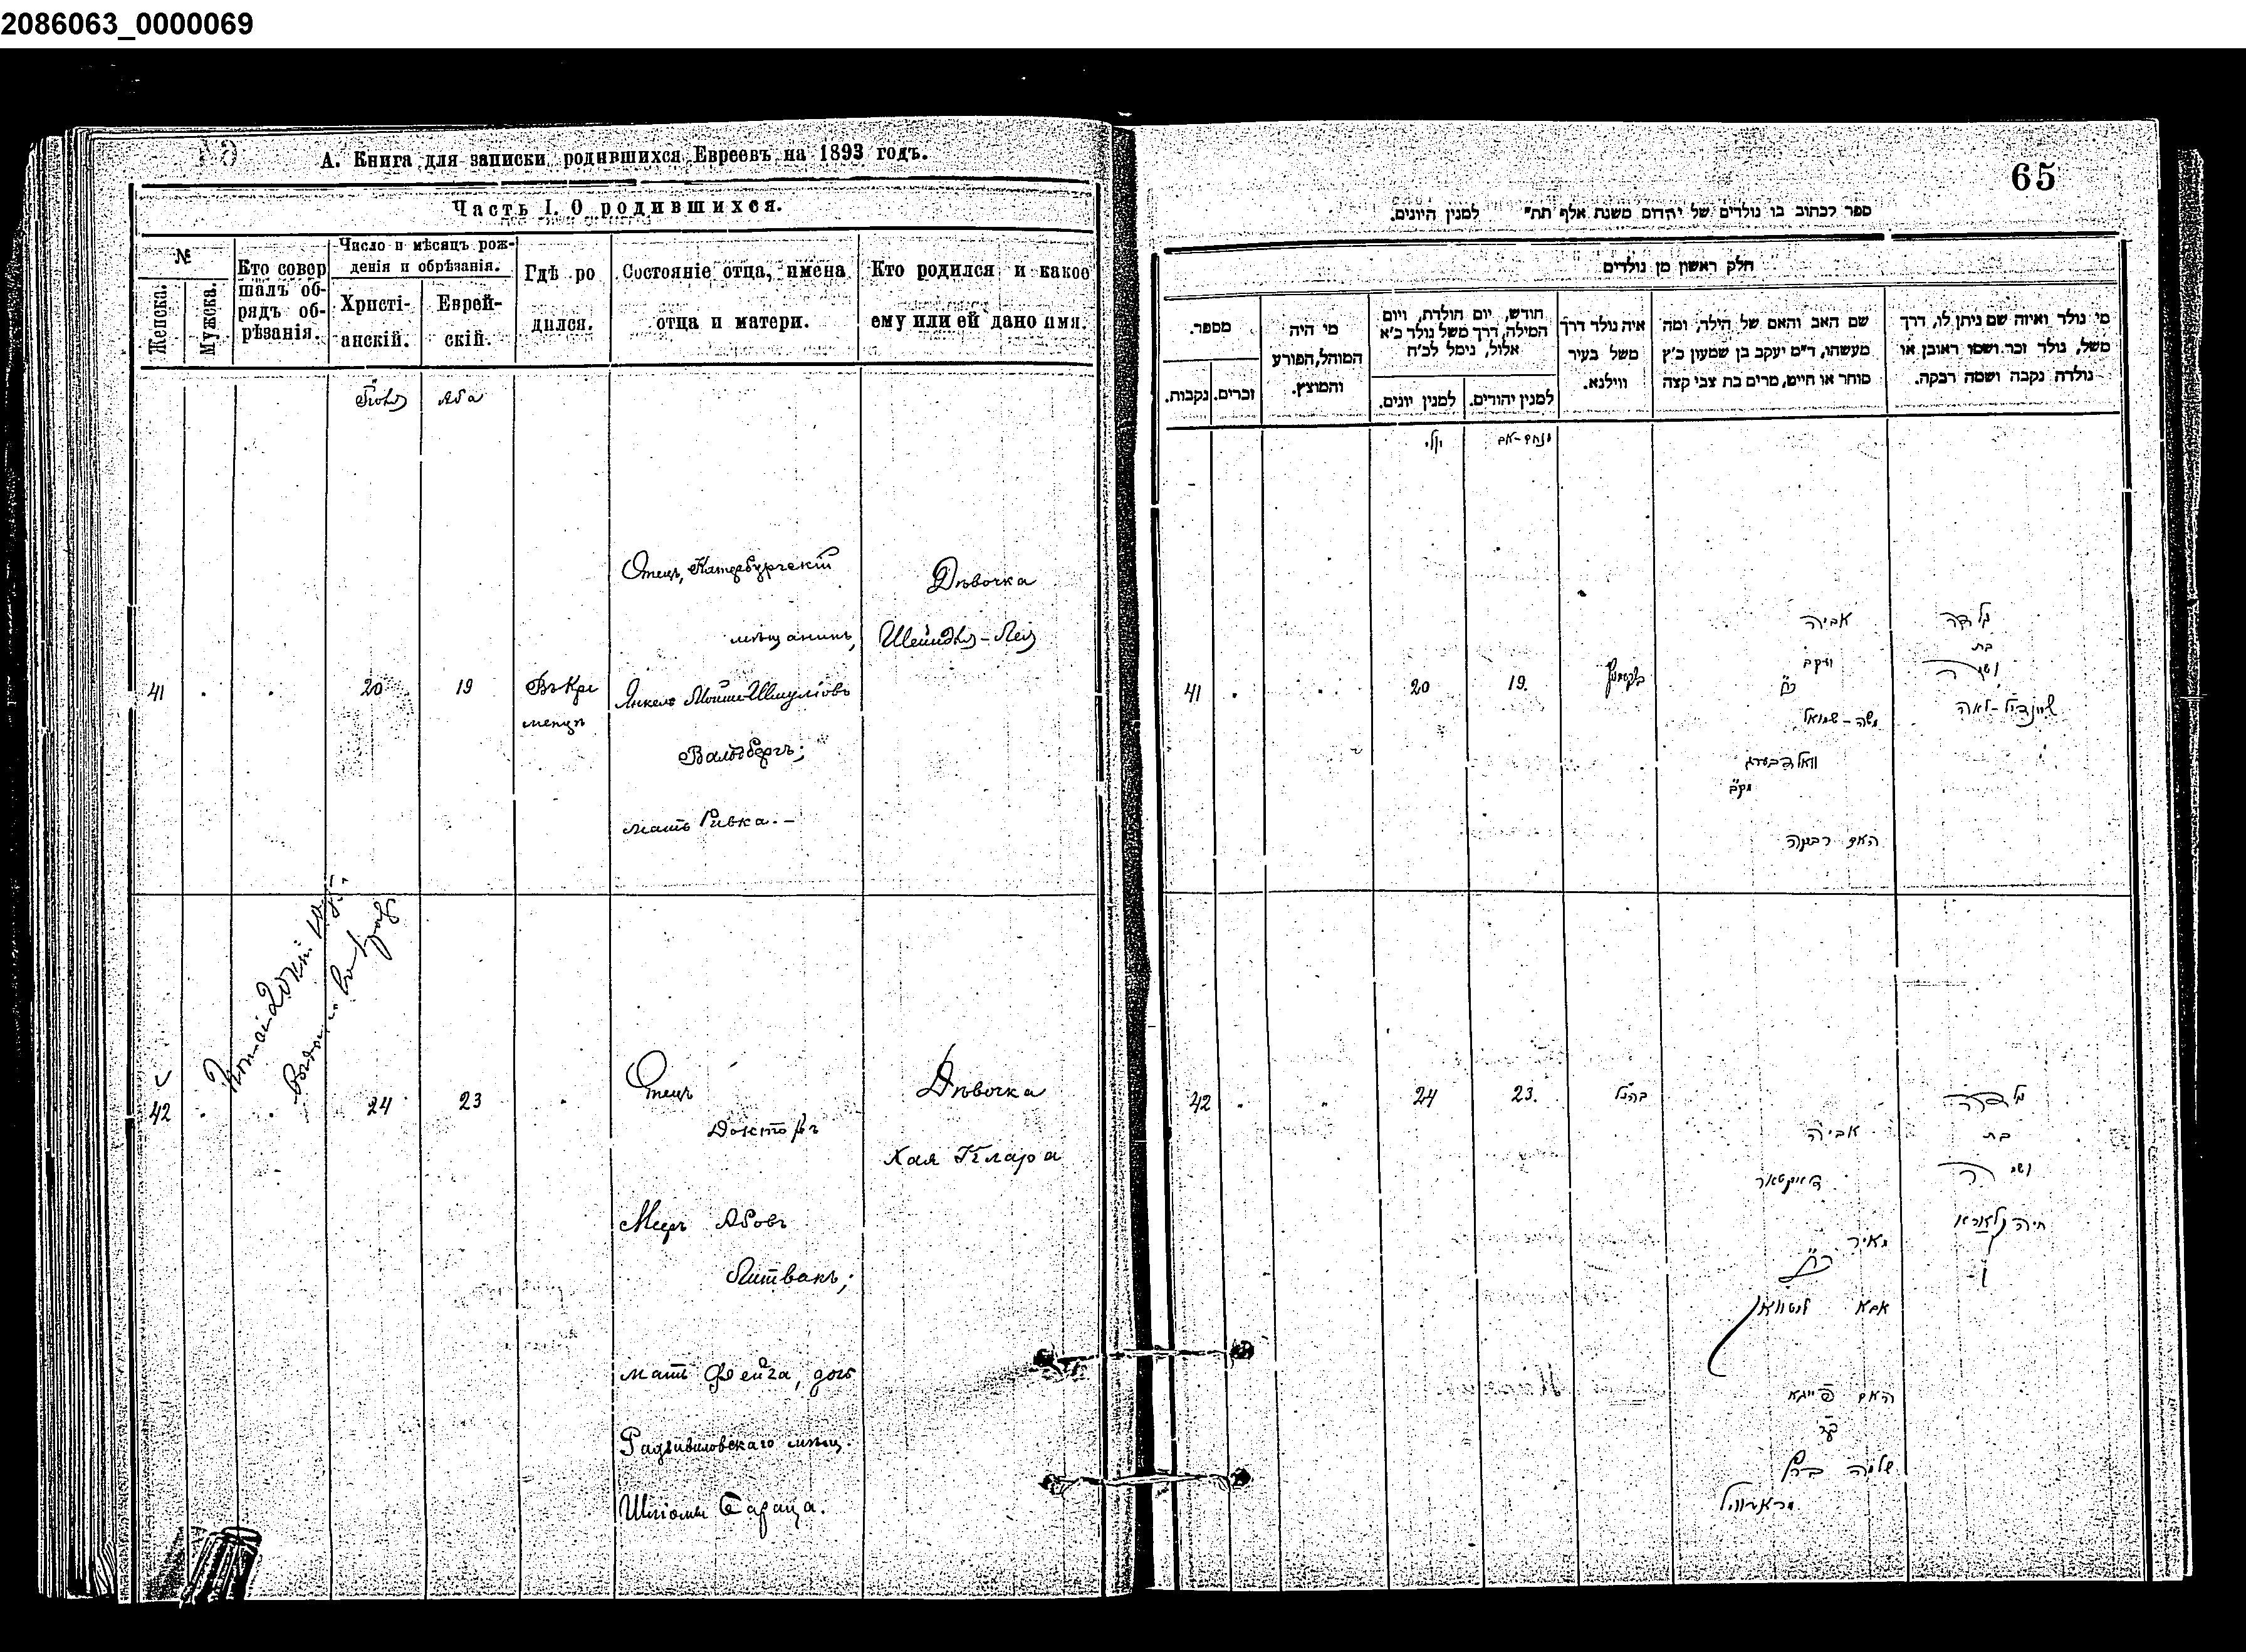 2086063_0000069
А. Книга для записки родившихся Евреевъ на 1893 годъ.
Часть I. О родившихся.
№
Женска.
Мужска.
Кто совер
шалъ об-
рядъ об-
рѣзанія.
Число и мѣсяцъ рож-
денія и обрѣзанія.
Христі-
анскій.
Еврей-
скій.
Гдѣ ро
дился.
Состояніе отца, имена
отца и матери.
Кто родился и какое
ему или ей дано имя.
Іюль
Аба
41
20
19
Въ Кре
менцѣ
Отецъ, Катербургскій
мѣщанинъ,
Янкель Мойше-Шмуліовъ
Вальдбергъ;
мать Ривка.-
Дѣвочка
Шейндль-Лея
42
24
23
Отецъ
Докторъ
Меръ Абовъ
Литвакъ;
мать Фейга, дочь
Радзивиловскаго мѣщ.
Шліомы Бараца.
Дѣвочка
Хая Клара
65
ספר לכתוב בו נולדים של יהדום משנת אלף תת״ למנין היונים.
חלק ראשון מן נולדים
מספר.
נקבות.
זכרים.
מי היה
המוהל, הפורע
והמוצץ.
חודש, יום הולדת, ויום
המילה, דרך משל נולד כ״א
אלול, נימל לכ״ח
למנין יונים.
למנין יהודים.
איה נולד דרך
משל בעיר
ווילנא.
שם האב והאם של הילד, ומה
מעשהו, ד״מ יעקב בן שמעון כ״ץ
סוחר או חייט, מרים בת צבי קצה
מי נולד ואיזה שם ניתן לו, דרך
משל, נולד זכר ושמו ראובן או
נולדה נקבה ושמה רבקה.
יולי
מנחם-אב
41
20
19.
אביה
יעקב
משה-שמואל
וואלדבערג
האם רבקה
נולדה
בת
ושמה
שיינדיל-לאה
42
24
23.
בהנ״ל
אביה
דאקטאר
מאיר
אבא ליטוואק
האם פייגא
שלמה
נולדה
בת
ושמה
חיה קלארא